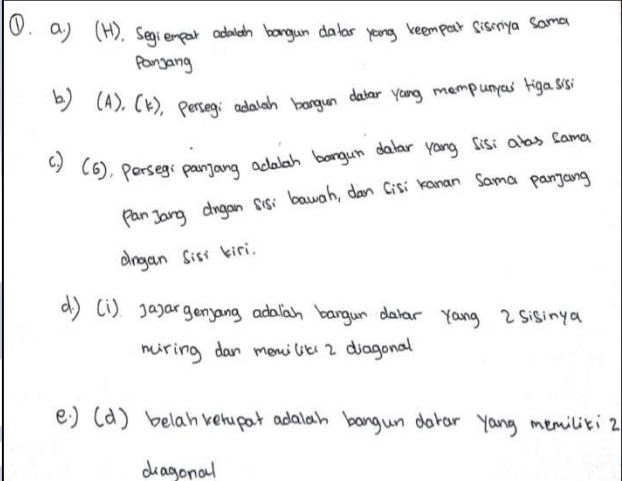 ①. a.) (H). Segi empat adalah bangun datar yang keempat sisinya sama
panjang
b.) (A), (k), persegi adalah bangun datar yang mempunyai tiga sisi
c.) (G), Persegi panjang adalah bangun datar yang sisi atas sama
panjang dngan sisi bawah, dan sisi kanan sama panjang
dngan sisi kiri.
d.) (i) Jajar genjang adalah bangun datar yang 2 sisinya
miring dan memiliki 2 diagonal
e.) (d) belah ketupat adalah bangun datar yang memiliki 2
diagonal